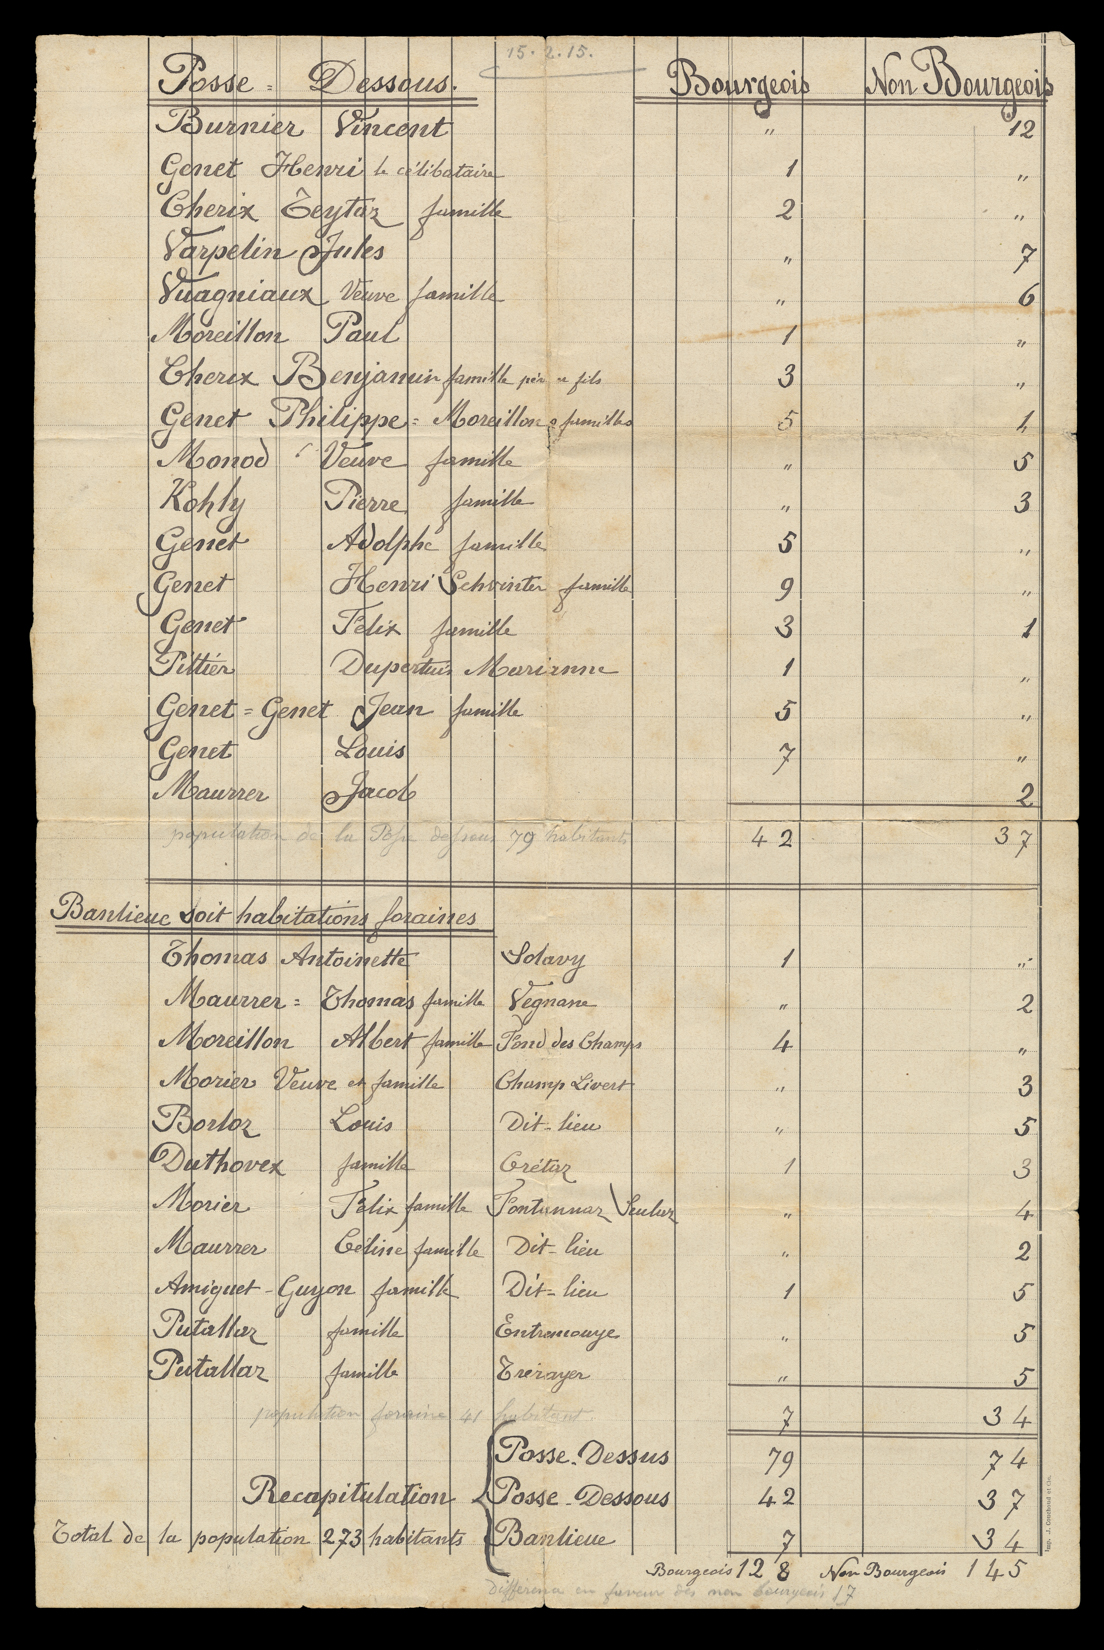 15.2.15.
Posse = Dessous. Bourgeois Non Bourgeois
Burnier Vincent " 12
Genet Henri le célibataire 1 "
Cherix Teytaz famille 2 "
Varpelin Jules " 7
Vuagniaux Veuve famille " 6
Moreillon Paul 1 "
Cherix Benjamin famille père fils 3 "
Genet Philippe = Moreillon 2 familles 5 1
Monod Veuve famille " 5
Kohly Pierre famille " 3
Genet Adolphe famille 5 "
Genet Henri Schvinter famille 9 "
Genet Félix famille 3 1
Pittier Dupertuis Marianne 1 "
Genet = Genet Jean famille 5 "
Genet Louis 7 "
Maurrer Jacob 2
population de la Posse dessous 79 habitants 42 37
Banlieue soit habitations foraines
Thomas Antoinette Solavy 1 "
Maurrer = Thomas famille Vegnane " 2
Moreillon Albert famille Fond des Champs 4 "
Morier Veuve et famille Champ Livert " 3
Borloz Louis Dit-lieu " 5
Duthovex famille Crétaz 1 3
Morier Félix famille Fontannaz Seulaz " 4
Maurrer Céline famille Dit-lieu " 2
Amiguet-Guyon famille Dit-lieu 1 5
Putallaz famille Entremouye " 5
Putallaz famille Trérayer " 5
population foraine 41 habitant 7 34
Posse-Dessus 79 74
Recapitulation Posse-Dessous 42 37
Total de la population 273 habitants Banlieue 7 34
Bourgeois 128 Non Bourgeois 145
Différence en faveur des non bourgeois 17